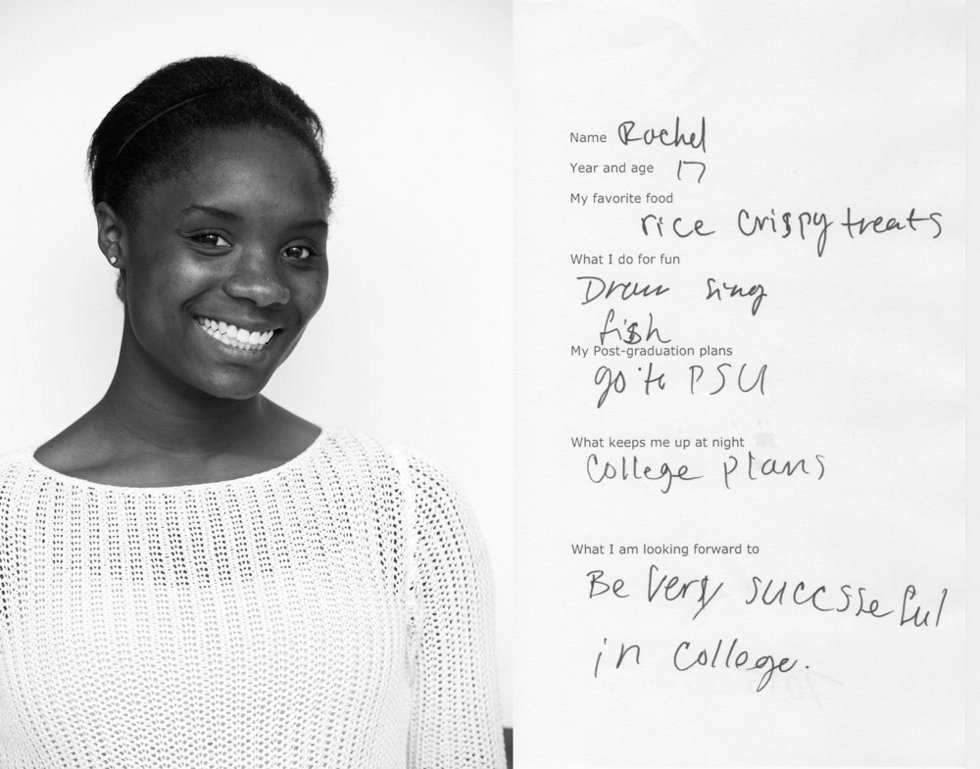 Name Rachel
Year and age 17
My favorite food
rice crispy treats
What I do for fun
Draw sing
fish
My Post-graduation plans
go to PSU
What keeps me up at night
College plans
What I am looking forward to
Be Very succssefful
in college.